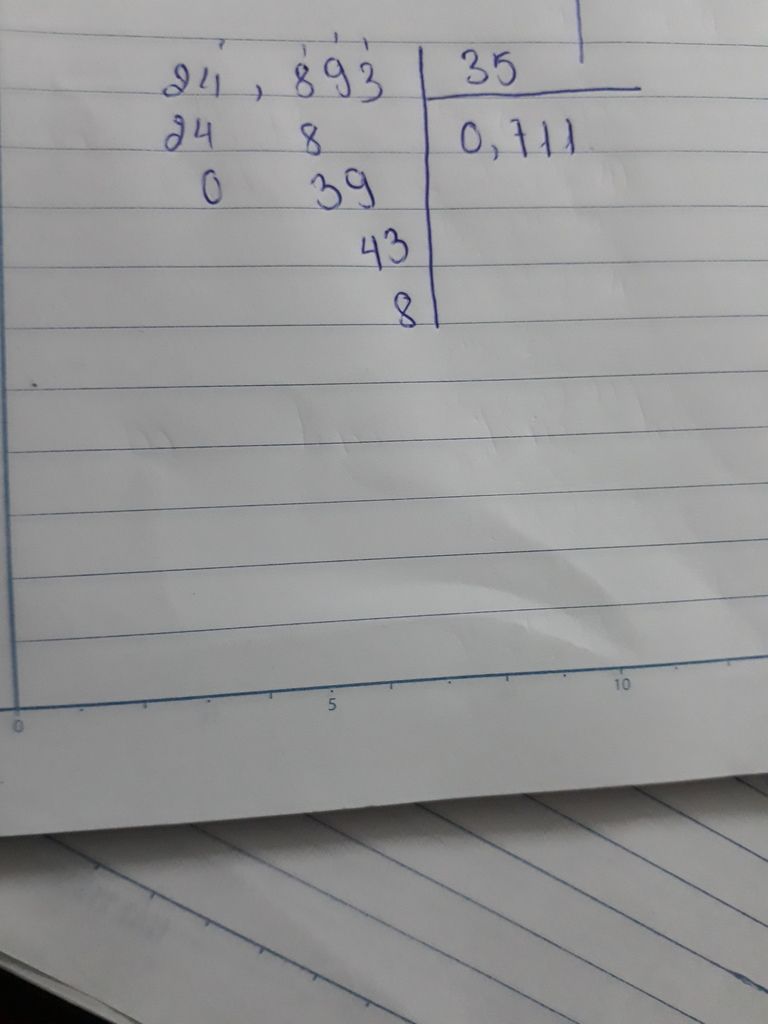 24,893 35
24 8 0,711
0 39
43
8
0 5 10